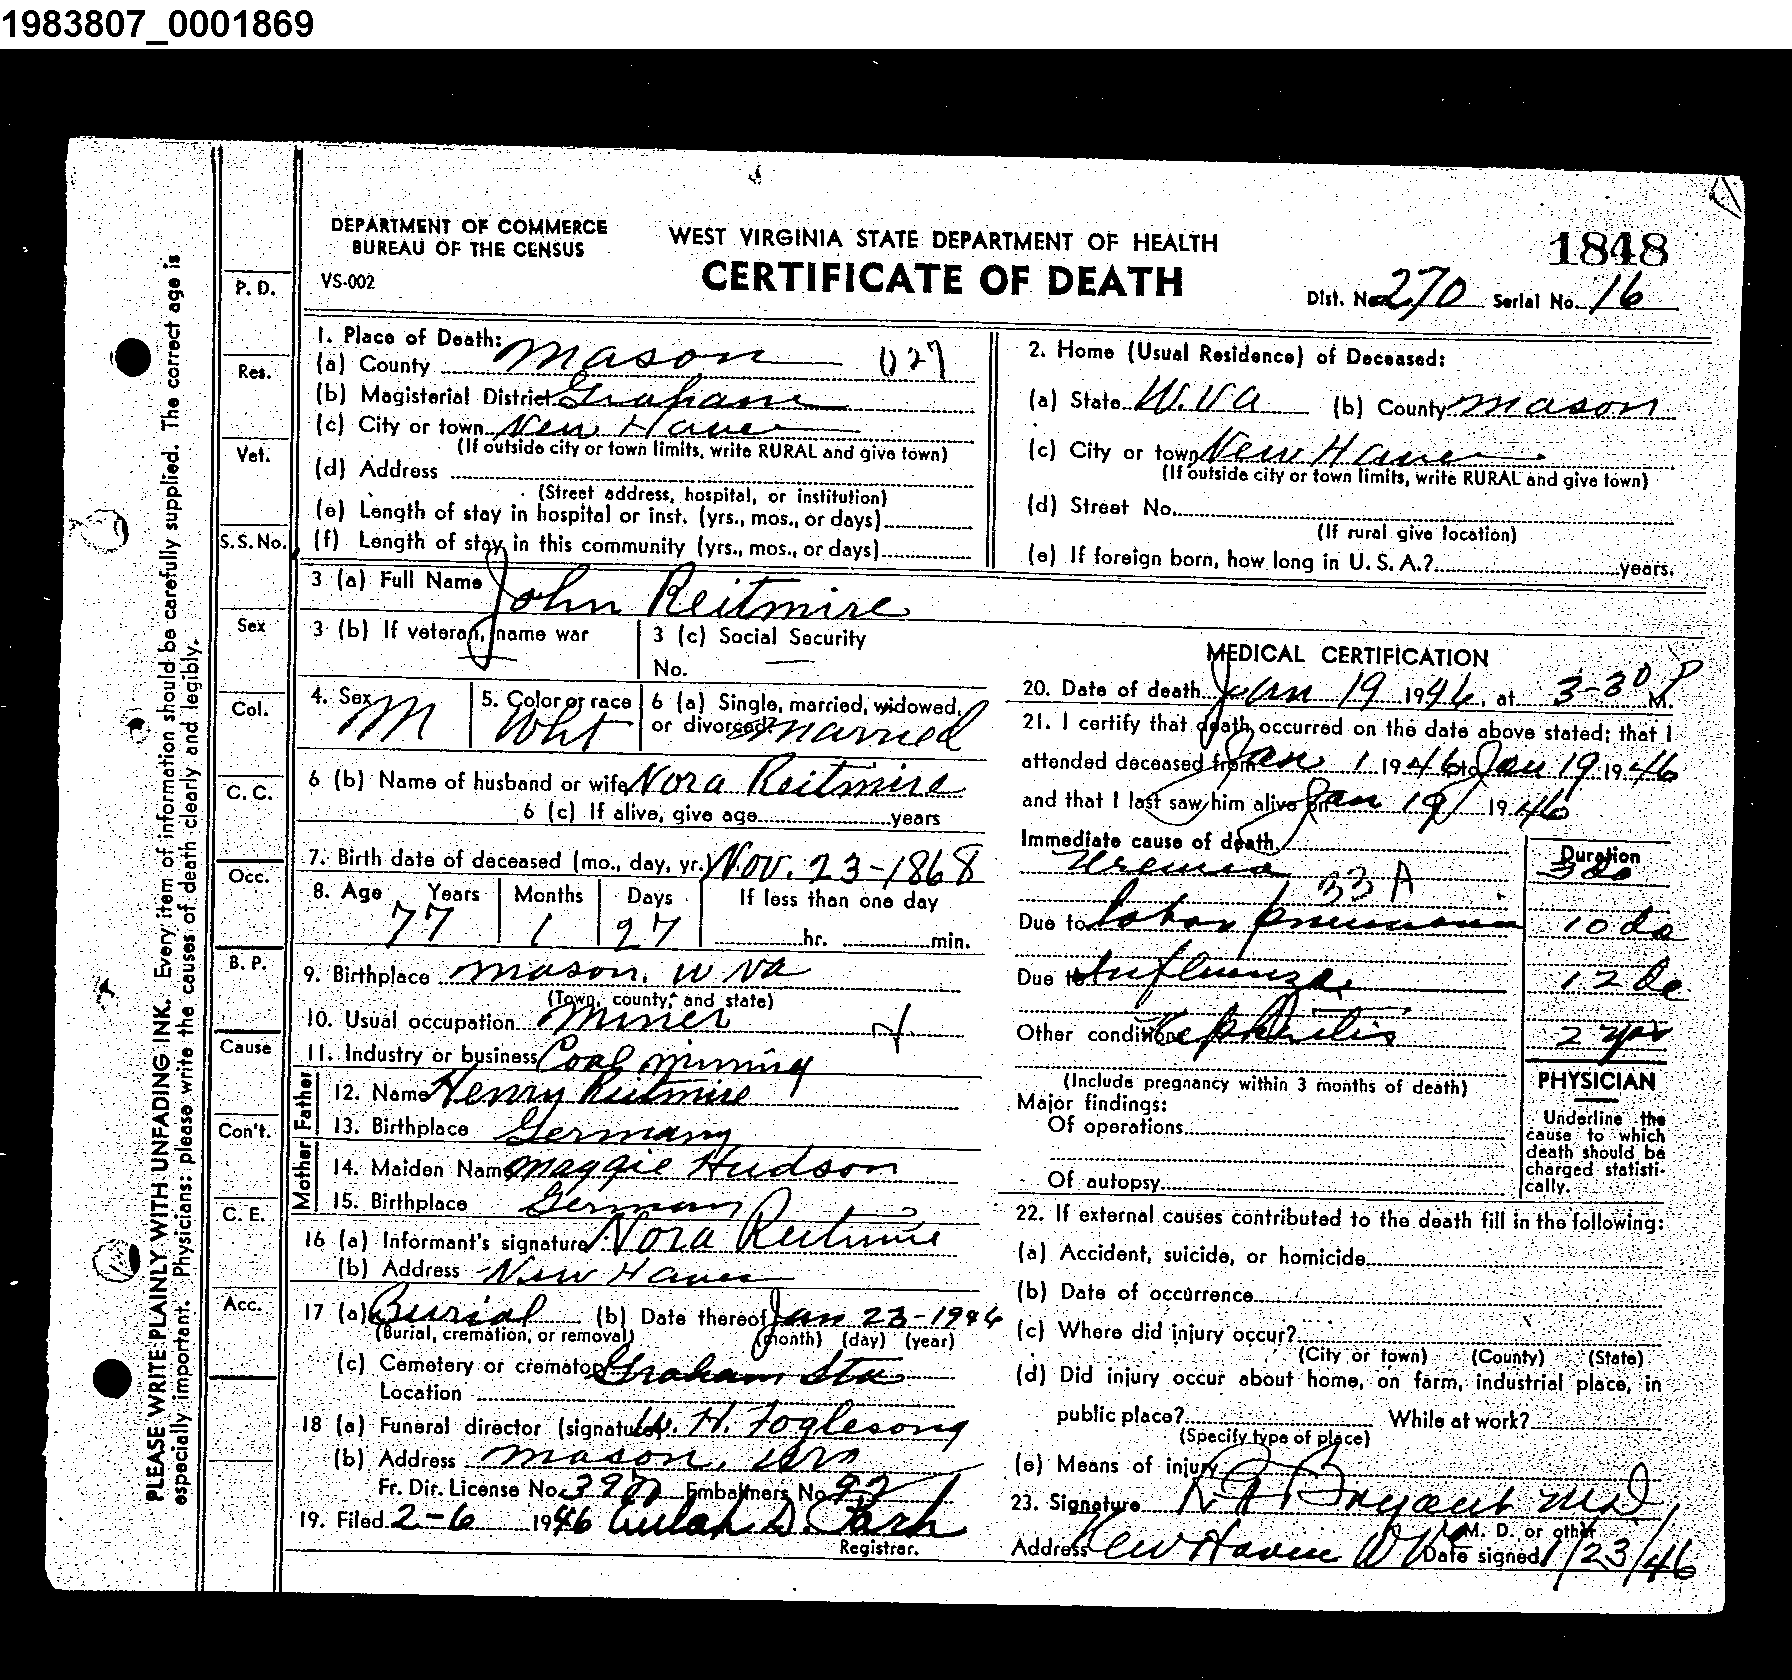 1983807_0001869
DEPARTMENT OF COMMERCE
BUREAU OF THE CENSUS
VS-002
WEST VIRGINIA STATE DEPARTMENT OF HEALTH
CERTIFICATE OF DEATH
1848
Dist. No. 270 Serial No. 16
PLEASE WRITE PLAINLY WITH UNFADING INK. Every item of information should be carefully supplied. The correct age is
especially important. Physicians: please write the causes of death clearly and legibly.
P. D.
Res.
Vet.
S. S. No.
Sex
Col.
C. C.
Occ.
B. P.
Cause
Con't.
C. E.
Acc.
1. Place of Death:
(a) County Mason 027
(b) Magisterial District Graham
(c) City or town New Haven
(If outside city or town limits, write RURAL and give town)
(d) Address
(Street address, hospital, or institution)
(e) Length of stay in hospital or inst. (yrs., mos., or days)
(f) Length of stay in this community (yrs., mos., or days)
2. Home (Usual Residence) of Deceased:
(a) State W. Va (b) County Mason
(c) City or town New Haven
(If outside city or town limits, write RURAL and give town)
(d) Street No.
(If rural give location)
(e) If foreign born, how long in U. S. A.? years.
3 (a) Full Name John Reitmire
3 (b) If veteran, name war —
3 (c) Social Security
No. —
4. Sex M
5. Color or race Wht
6 (a) Single, married, widowed,
or divorced married
6 (b) Name of husband or wife Nora Reitmire
6 (c) If alive, give age years
7. Birth date of deceased (mo., day, yr.) Nov. 23-1868
8. Age Years Months Days If less than one day
77 1 27 hr. min.
9. Birthplace Mason, W Va
(Town, county, and state)
10. Usual occupation Miner
11. Industry or business Coal mining
Father
12. Name Henry Reitmire
13. Birthplace Germany
Mother
14. Maiden Name Maggie Hudson
15. Birthplace Germany
16 (a) Informant's signature Nora Reitmire
(b) Address New Haven
17 (a) Burial (b) Date thereof Jan 23-1946
(Burial, cremation, or removal) (month) (day) (year)
(c) Cemetery or crematory Graham Sta
Location
18 (a) Funeral director (signature) W. H. Foglesong
(b) Address Mason, W Va
Fr. Dir. License No. 397 Embalmers No. 92
19. Filed 2-6 1946 Eulah D. Park
Registrar.
MEDICAL CERTIFICATION
20. Date of death Jan 19 1946, at 3-30 P M.
21. I certify that death occurred on the date above stated; that I
attended deceased from Jan 1 1946 to Jan 19 1946
and that I last saw him alive on Jan 19 1946
Immediate cause of death Duration
Uremia 3 da
33 A
Due to lobar pneumonia 10 da
Due to Influenza 12 da
Other conditions Nephritis 2 yrs
(Include pregnancy within 3 months of death)
Major findings:
Of operations
Of autopsy
PHYSICIAN
Underline the
cause to which
death should be
charged statisti-
cally.
22. If external causes contributed to the death fill in the following:
(a) Accident, suicide, or homicide
(b) Date of occurrence
(c) Where did injury occur?
(City or town) (County) (State)
(d) Did injury occur about home, on farm, industrial place, in
public place? While at work?
(Specify type of place)
(e) Means of injury
23. Signature Bryant MD
M. D. or other
Address New Haven W Va Date signed 1/23/46